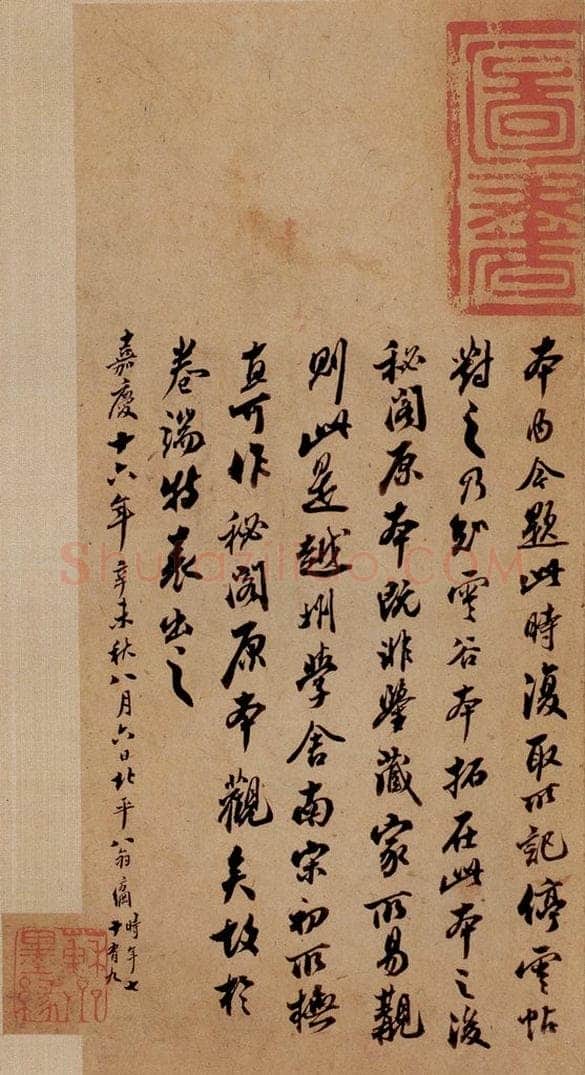 本內今題此時復取所記停雲帖
對之乃知雲谷本拓在此本之後
秘閣原本既非鑒藏家所易覯
則此是越州學舍南宋初所橅
直可作秘閣原本觀矣故於
卷端特表出之
嘉慶十六年辛未秋八月六日北平翁方綱時年七十有九